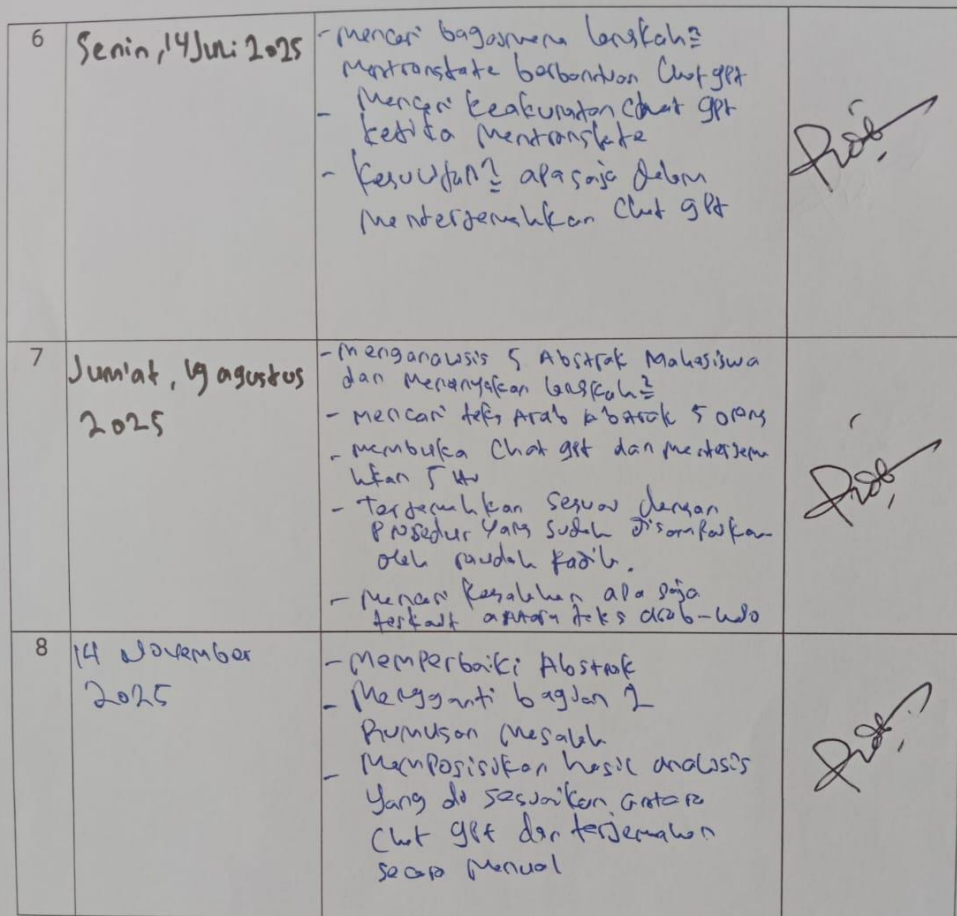 6
Senin, 14 Juli 2025
- Mencari bagaimana langkah2
Mentranslate berbantuan Chat gpt
- Mencari keakuratan Chat gpt
ketika Mentranslate
- Kesulitan2 apa saja dalam
Menterjemahkan Chat gpt
7
Jum'at, 19 agustus
2025
- Menganalisis 5 Abstrak Mahasiswa
dan Menanyakan langkah2
- Mencari teks Arab Abstrak 5 orang
- Membuka Chat gpt dan Menterjema
hkan 5 itu
- Terjemahkan sesuai dengan
Prosedur yang sudah disampaikan
oleh
- Mencari Kesalahan apa saja
terkait antara teks arab-indo
8
14 November
2025
- Memperbaiki Abstrak
- Mengganti bagian 2
Rumusan Masalah
- Memposisikan hasil analisis
yang di sesuaikan antara
Chat gpt dan terjemahan
secara Manual